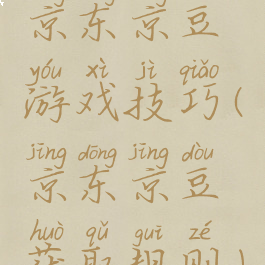 京东京豆
yóu xì jì qiǎo
游戏技巧(
jīng dōng jīng dòu
京东京豆
huò qǔ guī zé
获取规则)